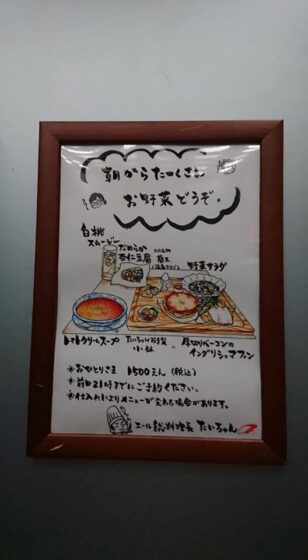 朝からたくさん
お野菜どうぞ。
白桃
スムージー
なめらか
杏仁豆腐
野菜サラダ
トマトクリームスープ
小鉢
厚切りベーコンの
イングリッシュマフィン
＊おひとりさま 1500えん（税込）
＊前日21時までにご予約ください。
＊仕入れによりメニューが変わる場合があります。
エール 総料理長 たいちゃん